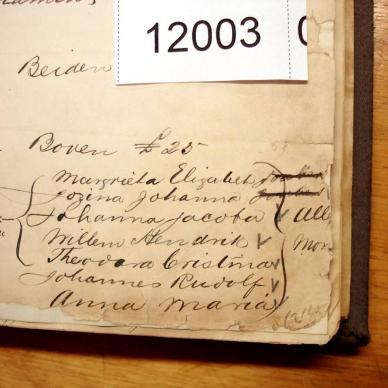 12003
Beiden
Boven £25
Margrieta Elizabeth
Jozina Johanna
Johanna Jacoba All
Willem Hendrik
Theodora Cristina
Johannes Rudolf
Anna Maria